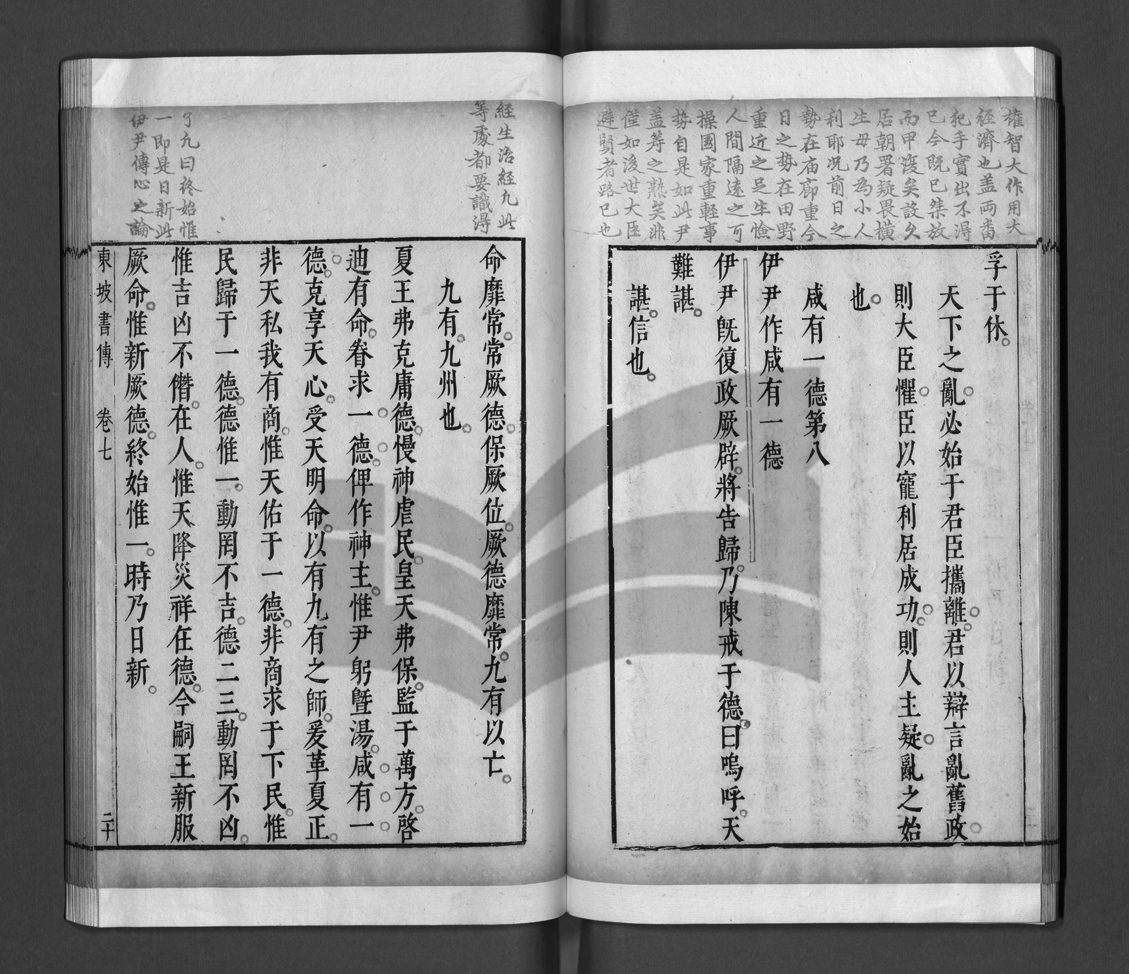 權智大作用大
經濟也盖兩畨
犯手實出不得
已今既已桀放
而甲復矣設久
居朝署疑畏橫
生毋乃為小人
利耶况前日之
勢在庙廊重今
日之勢在田野
重近之足生憸
人間隔遠之可
操國家重軽事
勢自是如此尹
盖筹之熟矣非
僅如後世大臣
避賢者路已也
孚于休
天下之亂必始于君臣攜離君以辯言亂舊政
則大臣懼臣以寵利居成功則人主疑亂之始
也
咸有一德第八
伊尹作咸有一德
伊尹旣復政厥辟將告歸乃陳戒于德曰嗚呼天
難諶
諶信也
経生治経九此
等處都要識得
命靡常常厥德保厥位厥德靡常九有以亡
九有九州也
夏王弗克庸德慢神虐民皇天弗保監于萬方啓
迪有命眷求一德俾作神主惟尹躬曁湯咸有一
德克享天心受天明命以有九有之師爰革夏正
非天私我有商惟天佑于一德非商求于下民惟
民歸于一德德惟一動罔不吉德二三動罔不凶
惟吉凶不僭在人惟天降災祥在德今嗣王新服
厥命惟新厥德終始惟一時乃日新
九曰終始惟
一即是日新此
伊尹傳心之論
東坡書傳 卷七 二十